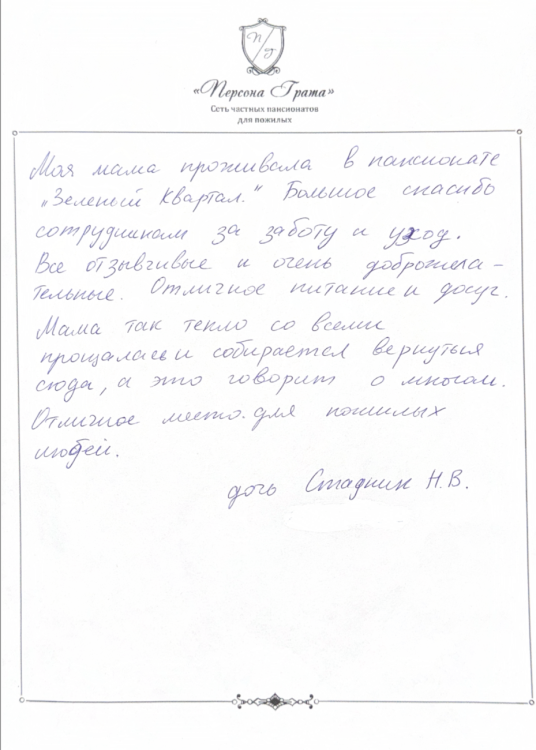 П/Г
«Персона Грата»
Сеть частных пансионатов
для пожилых
Моя мама проживала в пансионате
„Зеленый Квартал." Большое спасибо
сотрудникам за заботу и уход.
Все отзывчивые и очень доброжела-
тельные. Отличное питание и досуг.
Мама так тепло со всеми
прощалась и собирается вернуться
сюда, а это говорит о многом.
Отличное место для пожилых
людей.
дочь Стадник Н.В.